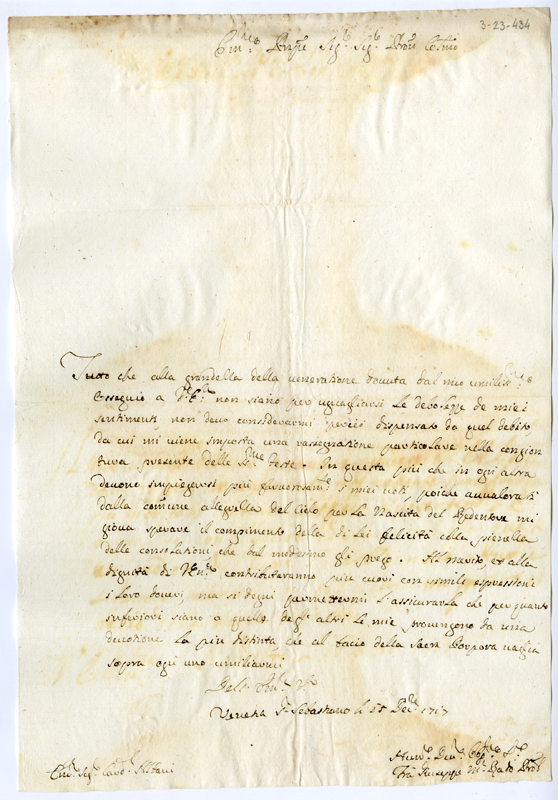 3-23-434
Em.mo Sig.r Sig.r Cosmo
Tutto che alla grandezza della venerazione dovuta dal mio umiliss.mo
Ossequio a V.E. non siano per uguagliarsi le debolezze de miei
sentimenti, non devo considerarmi perciò dispensato da quel debito
da cui mi viene imposta una rassegnazione particolare nella congion
tura presente delle S.me feste. In questa più che in ogni altra
devono impiegarsi più i miei voti poiche avvalorati
dalla comune allegrezza del Cielo per la Nascita del Redentore mi
giova sperare il compimento della di Lei felicità colla pienezza
delle consolationi che dal medesimo gli prego. Al merito, et alla
dignità di V.Em. contribuiranno più cuori con simile espressioni
i loro doveri, ma si degni permettermi l'assicurarla che per quanto
inferiori siano a quelle degl'altri le mie provengono da una
devotione la più distinta, che al bacio della Sacra Porpora vaglia
sopra ogni uno umiliarmi
Dell' Em. V.
Venetia S. Sebastiano li 15 Dec. 1717
Em. Sig. Card. Albani
Fra Giuseppe M.